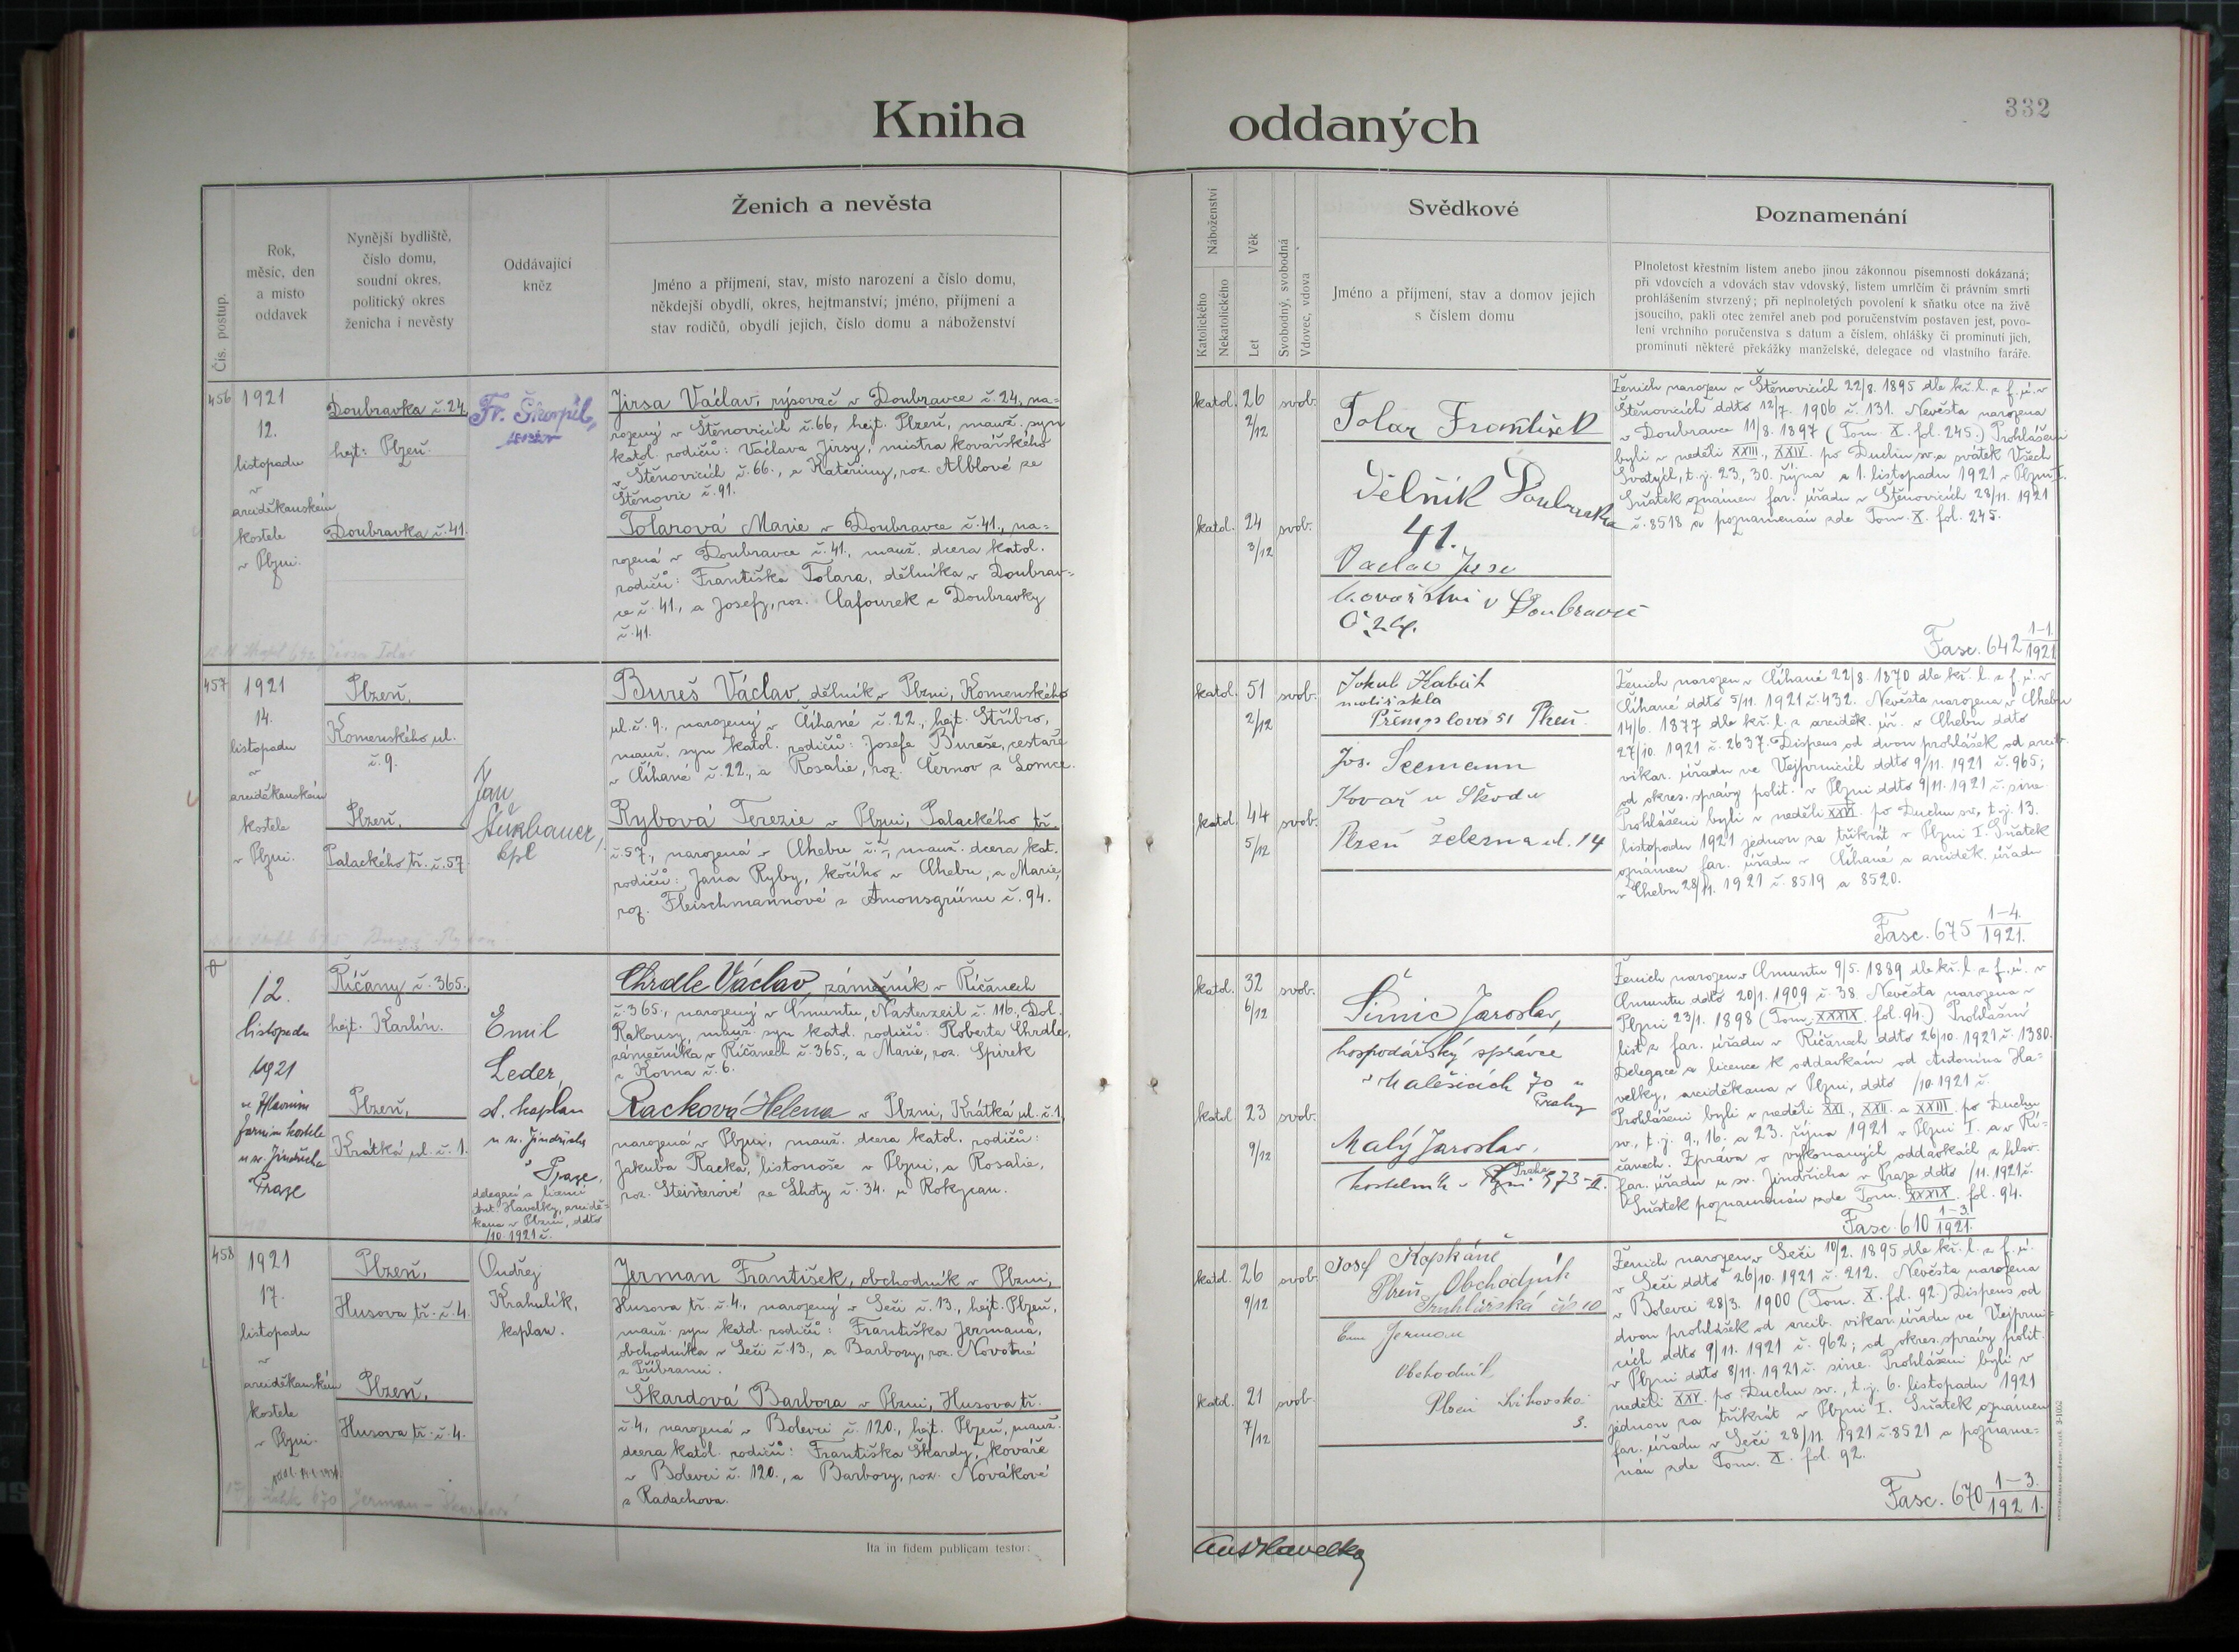 Kniha oddaných
332
Čís. postup.
Rok,
měsíc, den
a místo
oddavek
Nynější bydliště,
číslo domu,
soudní okres,
politický okres
ženicha i nevěsty
Oddávající
kněz
Ženich a nevěsta
Jméno a příjmení, stav, místo narození a číslo domu,
někdejší obydlí, okres, hejtmanství; jméno, příjmení a
stav rodičů, obydlí jejich, číslo domu a náboženství
Náboženství
Katolického
Nekatolického
Věk
Let
Svobodný, svobodná
Vdovec, vdova
Svědkové
Jméno a příjmení, stav a domov jejich
s číslem domu
Poznamenání
Plnoletost křestním listem anebo jinou zákonnou písemností dokázaná;
při vdovcích a vdovách stav vdovský, listem umrlčím či právním smrti
prohlášením stvrzený; při neplnoletých povolení k sňatku otce na živě
jsoucího, pakli otec zemřel aneb pod poručenstvím postaven jest, povo-
lení vrchního poručenstva s datum a číslem, ohlášky či prominutí jich,
prominutí některé překážky manželské, delegace od vlastního faráře.
456
1921
12.
listopadu
v
arciděkanském
kostele
v Plzni.
Doubravka č. 24.
hejt: Plzeň.
Doubravka č. 41.
Fr. Škorpil,
Jirsa Václav, rýsovač v Doubravce č. 24, na-
rozený v Štěnovicích č. 66, hejt. Plzeň, manž. syn
katol. rodičů: Václava Jirsy, mistra kovářského
v Štěnovicích č. 66., a Kateřiny, roz. Alblové ze
Štěnovic č. 91.
Tolarová Marie v Doubravce č. 41., na-
rozená v Doubravce č. 41., manž. dcera katol.
rodičů: Františka Tolara, dělníka v Doubrav-
ce č. 41., a Josefy, roz. Clafourek z Doubravky
č. 41.
katol. 26 2/12 svob.
katol. 24 3/12 svob.
Tolar František
Dělník Doubravka
41.
Kovářství v Doubravce
Č 24.
Ženich narozen v Štěnovicích 22/8. 1895 dle kř. l. z f. ú. v
Štěnovicích ddto 12/7. 1906 č. 131. Nevěsta narozena
v Doubravce 11/8. 1897 (Tom. X. fol. 245.) Prohlášeni
byli v neděli XXIII., XXIV. po Duchu sv. a svátek Všech
Svatých, t. j. 23., 30. října a 1. listopadu 1921 v Plzni I.
Sňatek oznámen far. úřadu v Štěnovicích 28/11. 1921
č. 8518 a poznamenán zde Tom. X. fol. 245.
Fasc. 642 1-1. 1921
457
1921
14.
listopadu
v
arciděkanském
kostele
v Plzni.
Plzeň,
Komenského ul.
č. 9.
Plzeň,
Palackého tř. č. 57
Jan
kpl
Bureš Václav, dělník v Plzni, Komenského
ul. č. 9., narozený v Číhané č. 22., hejt. Stříbro,
manž. syn katol. rodičů: Josefa Bureše, cestaře
v Číhané č. 22., a Rosalie, roz. Černov z Lomce.
Rybová Terezie v Plzni, Palackého tř.
č. 57., narozená v Chebu č. -, manž. dcera kat.
rodičů: Jana Ryby, kočího v Chebu, a Marie,
roz. Fleischmannové z Amonsgrünu č. 94.
katol. 51 2/12 svob.
katol. 44 5/12 svob.
Jakub Kabát
malíř skla
Přemyslova 51 Plzeň.
Jos. Seemann
Kovář u Škodu
Plzeň Železna ul. 14
Ženich narozen v Číhané 22/8. 1870 dle kř. l. z f. ú. v
Číhané ddto 5/11. 1921 č. 432. Nevěsta narozena v Chebu
14/6. 1877 dle kř. l. z arciděk. úř. v Chebu ddto
27/10. 1921 č. 2637. Dispens od dvou prohlášek od arcib.
vikar. úřadu ve Vejprnicích ddto 9/11. 1921 č. 965;
od okres. správy polit. v Plzni ddto 9/11. 1921 č. sine.
Prohlášeni byli v neděli XXVI. po Duchu sv., t. j. 13.
listopadu 1921 jednou za třikrát v Plzni I. Sňatek
oznámen far. úřadu v Číhané a arciděk. úřadu
v Chebu 28/11. 1921 č. 8519 a 8520.
Fasc. 675 1-4. 1921.
12.
listopadu
1921
v hlavním
farním kostele
u sv. Jindřicha
Praze
Říčany č. 365.
hejt. Karlín.
Plzeň,
Krátká ul. č. 1.
Emil
Leder,
st. kaplan
u sv. Jindřicha
v Praze,
delegací a licencí
Ant. Havelky, arcidě-
kana v Plzni, ddto
/10. 1921 č.
Chrdle Václav, zámečník v Říčanech
č. 365., narozený v Gmuntu, Nasterzeil č. 116., Dol.
Rakousy, manž. syn katol. rodičů: Roberta Chrdle,
zámečníka v Říčanech č. 365., a Marie, roz. Spirek
z Kovna č. 6.
Racková Helena v Plzni, Krátká ul. č. 1.,
narozená v Plzni, manž. dcera katol. rodičů:
Jakuba Racka, listonoše v Plzni, a Rosalie,
roz. Steinerové ze Lhoty č. 34. u Rokycan.
katol. 32 6/12 svob.
katol. 23 9/12 svob.
Šimic Jaroslav,
hospodářský správce
v Malešicích 70 u
Prahy
Malý Jaroslav,
kostelník v Praha 973-II.
Ženich narozen v Gmuntu 9/5. 1889 dle kř. l. z f. ú. v
Gmuntu ddto 20/1. 1909 č. 38. Nevěsta narozena v
Plzni 23/1. 1898 (Tom. XXXIX. fol. 94.) Prohlášní
list z far. úřadu v Říčanech ddto 26/10. 1921 č. 1380.
Delegace a licence k oddavkám od Antonína Ha-
velky, arciděkana v Plzni, ddto /10. 1921 č.
Prohlášeni byli v neděli XXI., XXII. a XXIII. po Duchu
sv., t. j. 9., 16. a 23. října 1921 v Plzni I. a v Ří-
čanech. Zpráva o vykonaných oddavkách z hlav.
far. úřadu u sv. Jindřicha v Praze ddto /11. 1921 č.
Sňatek poznamenán zde Tom. XXXIX. fol. 94.
Fasc. 610 1-3. 1921.
458
1921
17.
listopadu
v
arciděkanském
kostele
v Plzni.
Plzeň,
Husova tř. č. 4.
Plzeň,
Husova tř. č. 4.
Ondřej
Krahulík,
kaplan.
Jerman František, obchodník v Plzni,
Husova tř. č. 4., narozený v Seči č. 13., hejt. Plzeň,
manž. syn katol. rodičů: Františka Jermana,
obchodníka v Seči č. 13., a Barbory, roz. Novotné
z Příbrami.
Škardová Barbora v Plzni, Husova tř.
č. 4, narozená v Bolevci č. 120., hejt. Plzeň, manž.
dcera katol. rodičů: Františka Škardy, kováře
v Bolevci č. 120., a Barbory, roz. Novákové
z Radachova.
katol. 26 9/12 svob.
katol. 21 7/12 svob.
Josef
Plzeň Obchodník
Truhlářská čís 10
Jerman
Obchodník
Plzeň
3.
Ženich narozen v Seči 10/2. 1895 dle kř. l. z f. ú.
v Seči ddto 26/10. 1921 č. 212. Nevěsta narozena
v Bolevci 28/3. 1900 (Tom. X. fol. 92.) Dispens od
dvou prohlášek od arcib. vikar. úřadu ve Vejprni-
cích ddto 9/11. 1921 č. 962; od okres. správy polit.
v Plzni ddto 8/11. 1921 č. sine. Prohlášeni byli v
neděli XXV. po Duchu sv., t. j. 6. listopadu 1921
jednou za třikrát v Plzni I. Sňatek oznámen
far. úřadu v Seči 28/11. 1921 č. 8521 a pozname-
nán zde Tom. X. fol. 92.
Fasc. 670 1-3. 1921.
Ita in fidem publicam testor:
Ant Havelka